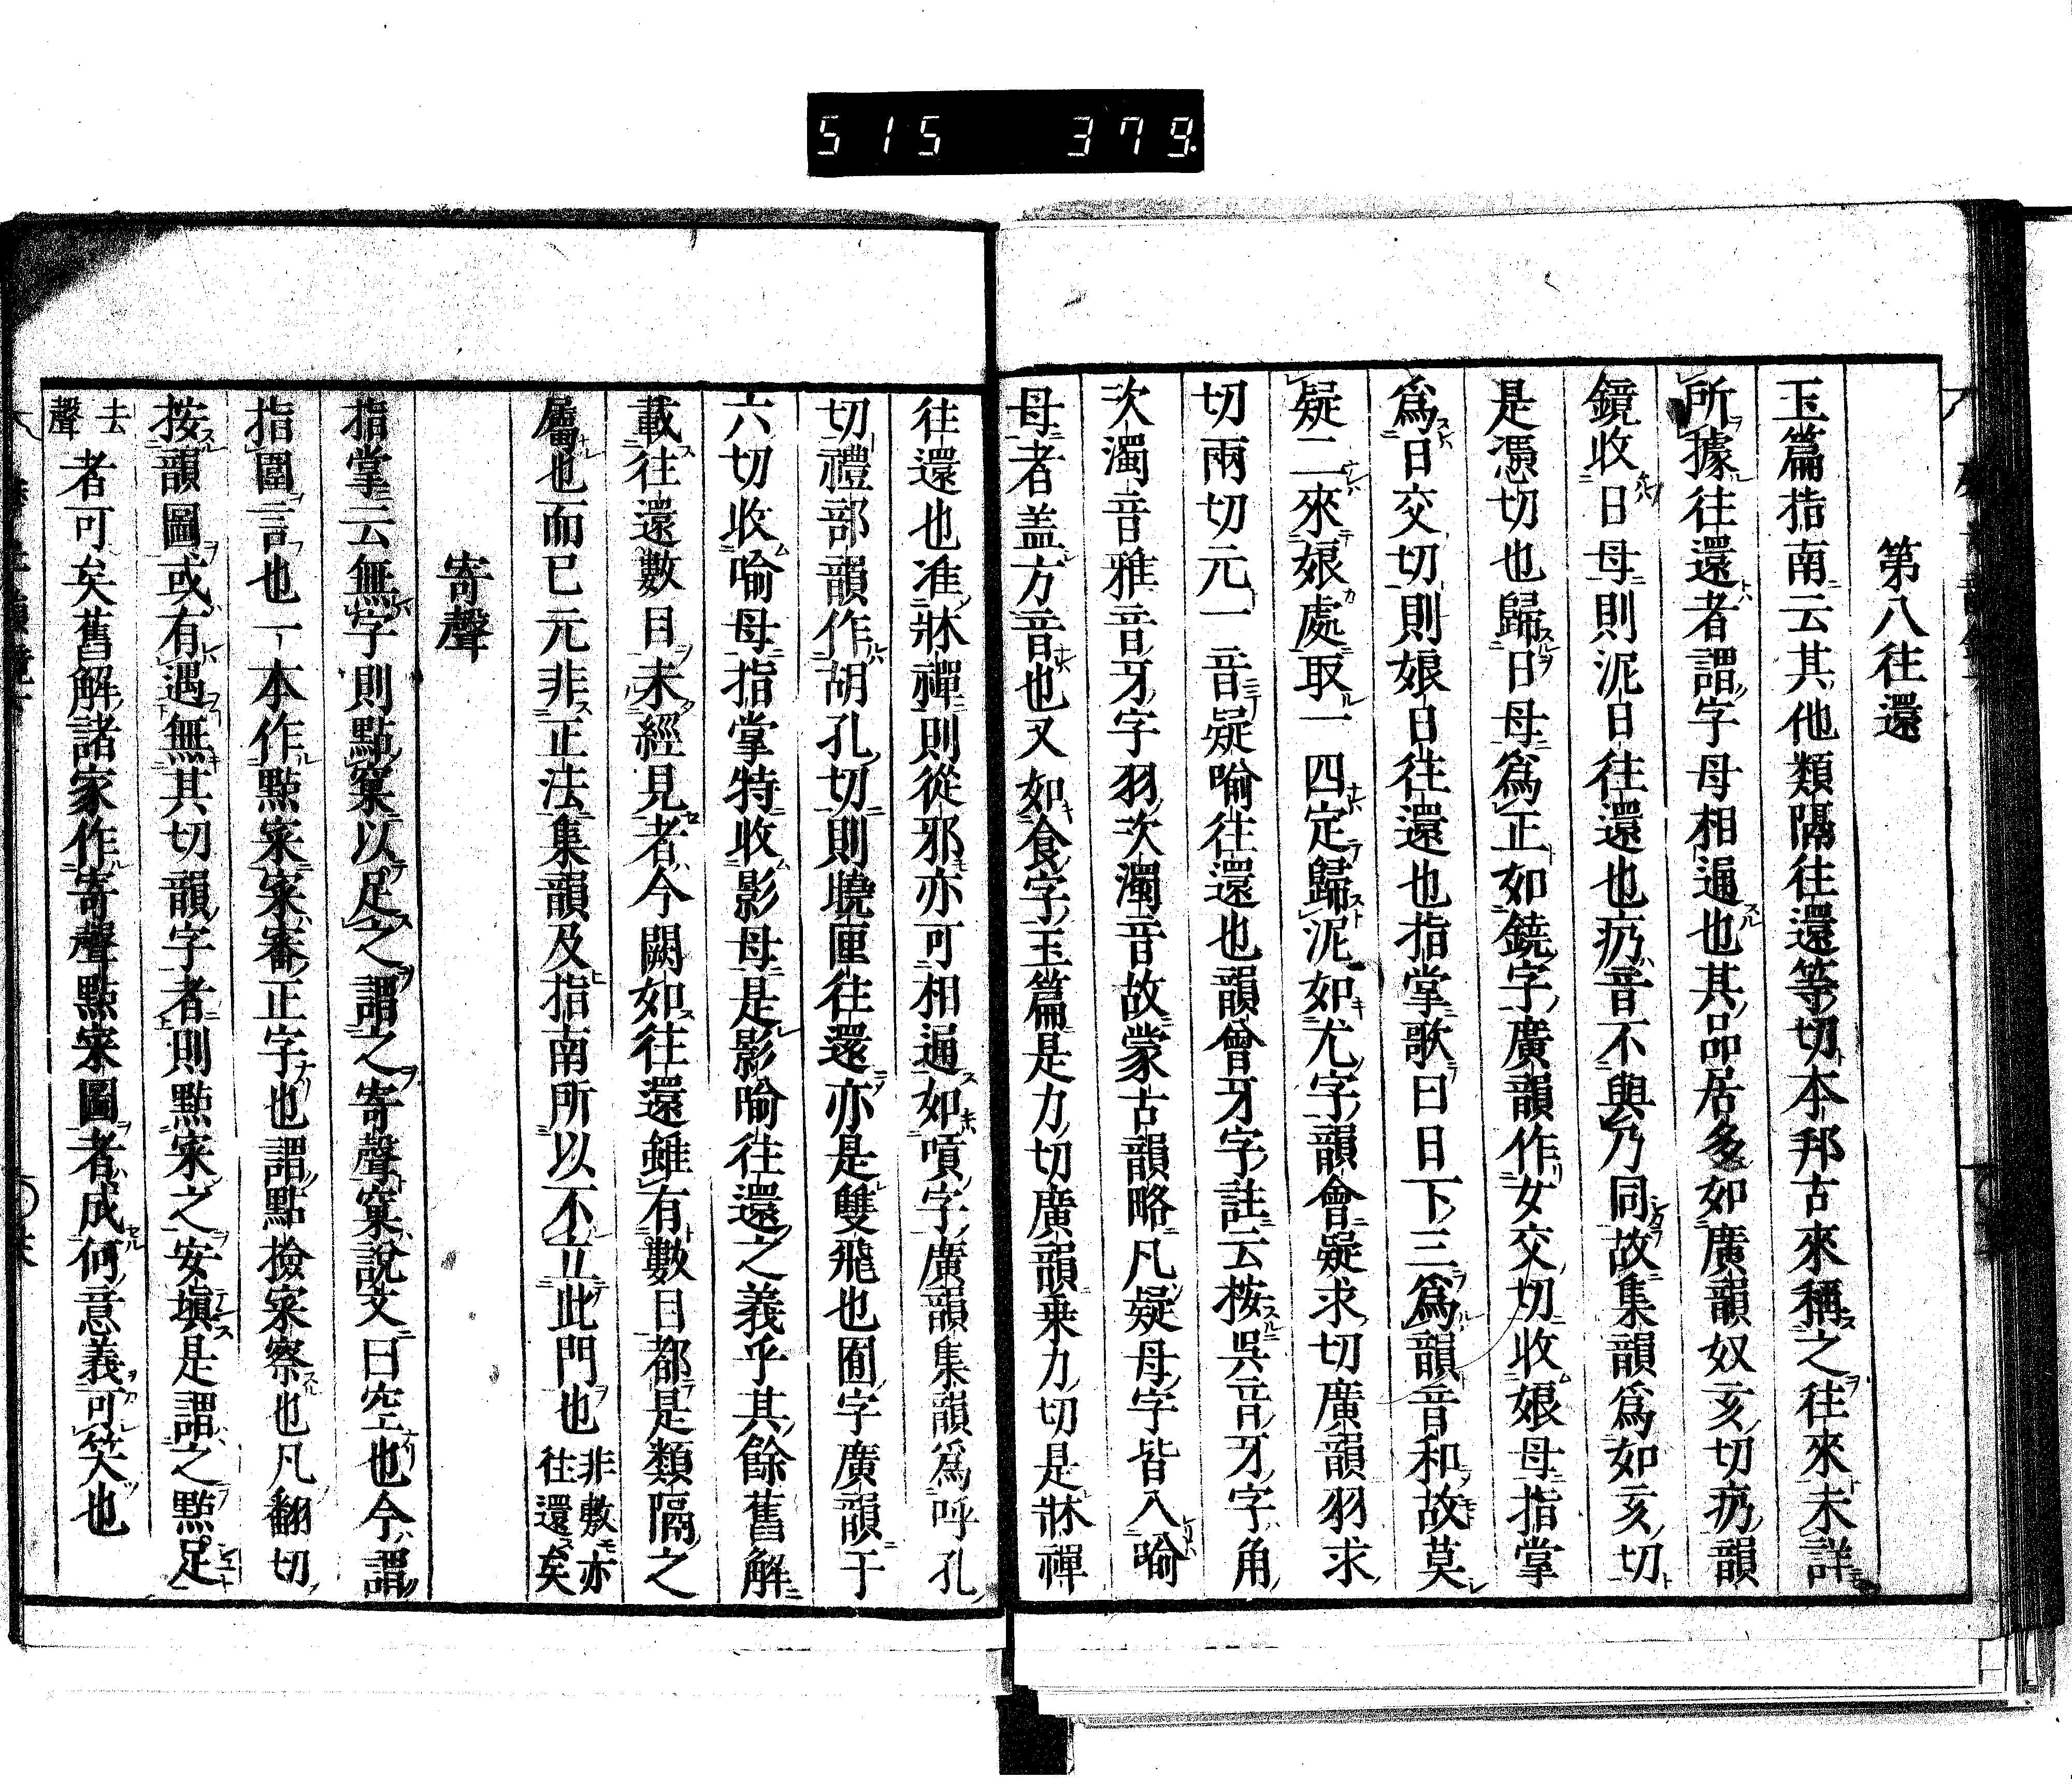 515 379.
第八往還
玉篇指南云其他類隔往還等切本邦古來稱之往來未詳
所據往還者謂字母相通也其品居多如廣韻奴亥切疓韻
鏡收日母則泥日往還也疓音不與乃同故集韻爲如亥切
是憑切也歸日母爲正如鐃字廣韻作女交切收娘母指掌
爲日交切則娘日往還也指掌歌曰日下三爲韻音和故莫
疑二來娘處取一四定歸泥如尤字韻會疑求切廣韻羽求
切兩切元一音疑喻往還也韻會牙字註云按吳音牙字角
次濁音雅音牙字羽次濁音故蒙古韻略凡疑母字皆入喻
母者盖方音也又如食字玉篇是力切廣韻乗力切是牀禪
往還也准牀禪則從邪亦可相通如嗊字廣韻集韻爲呼孔
切禮部韻作胡孔切則曉匣往還亦是雙飛也囿字廣韻于
六切收喻母指掌特收影母是影喻往還之義乎其餘舊解
載往還數目未經見者今闕如往還雖有數目都是類隔之
屬也而已元非正法集韻及指南所以不立此門也非敷亦
往還矣
寄聲
指掌云無字則點窠以足之謂之寄聲窠說文曰空也今謂
指圍言也一本作點寀寀審正字也謂點撿寀察也凡翻切
按韻圖或有遇無其切韻字者則點寀之安塡是謂之點足
去聲者可矣舊解諸家作寄聲點寀圖者成何意義可笑也